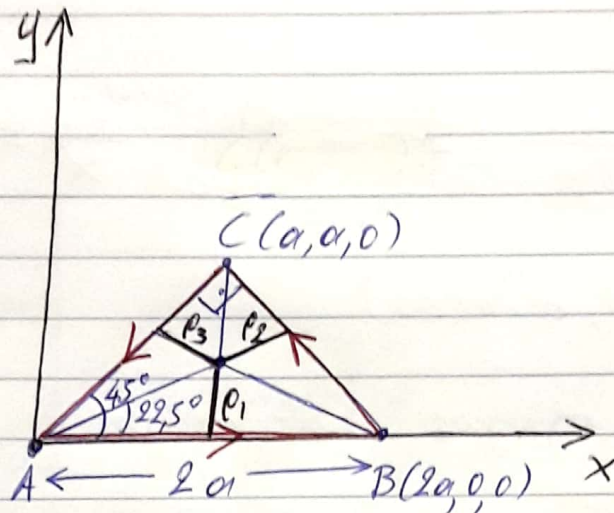 y
C(a,a,0)
ρ3 ρ2
45°
22,5° ρ1
A 2a B(2a,0,0) x